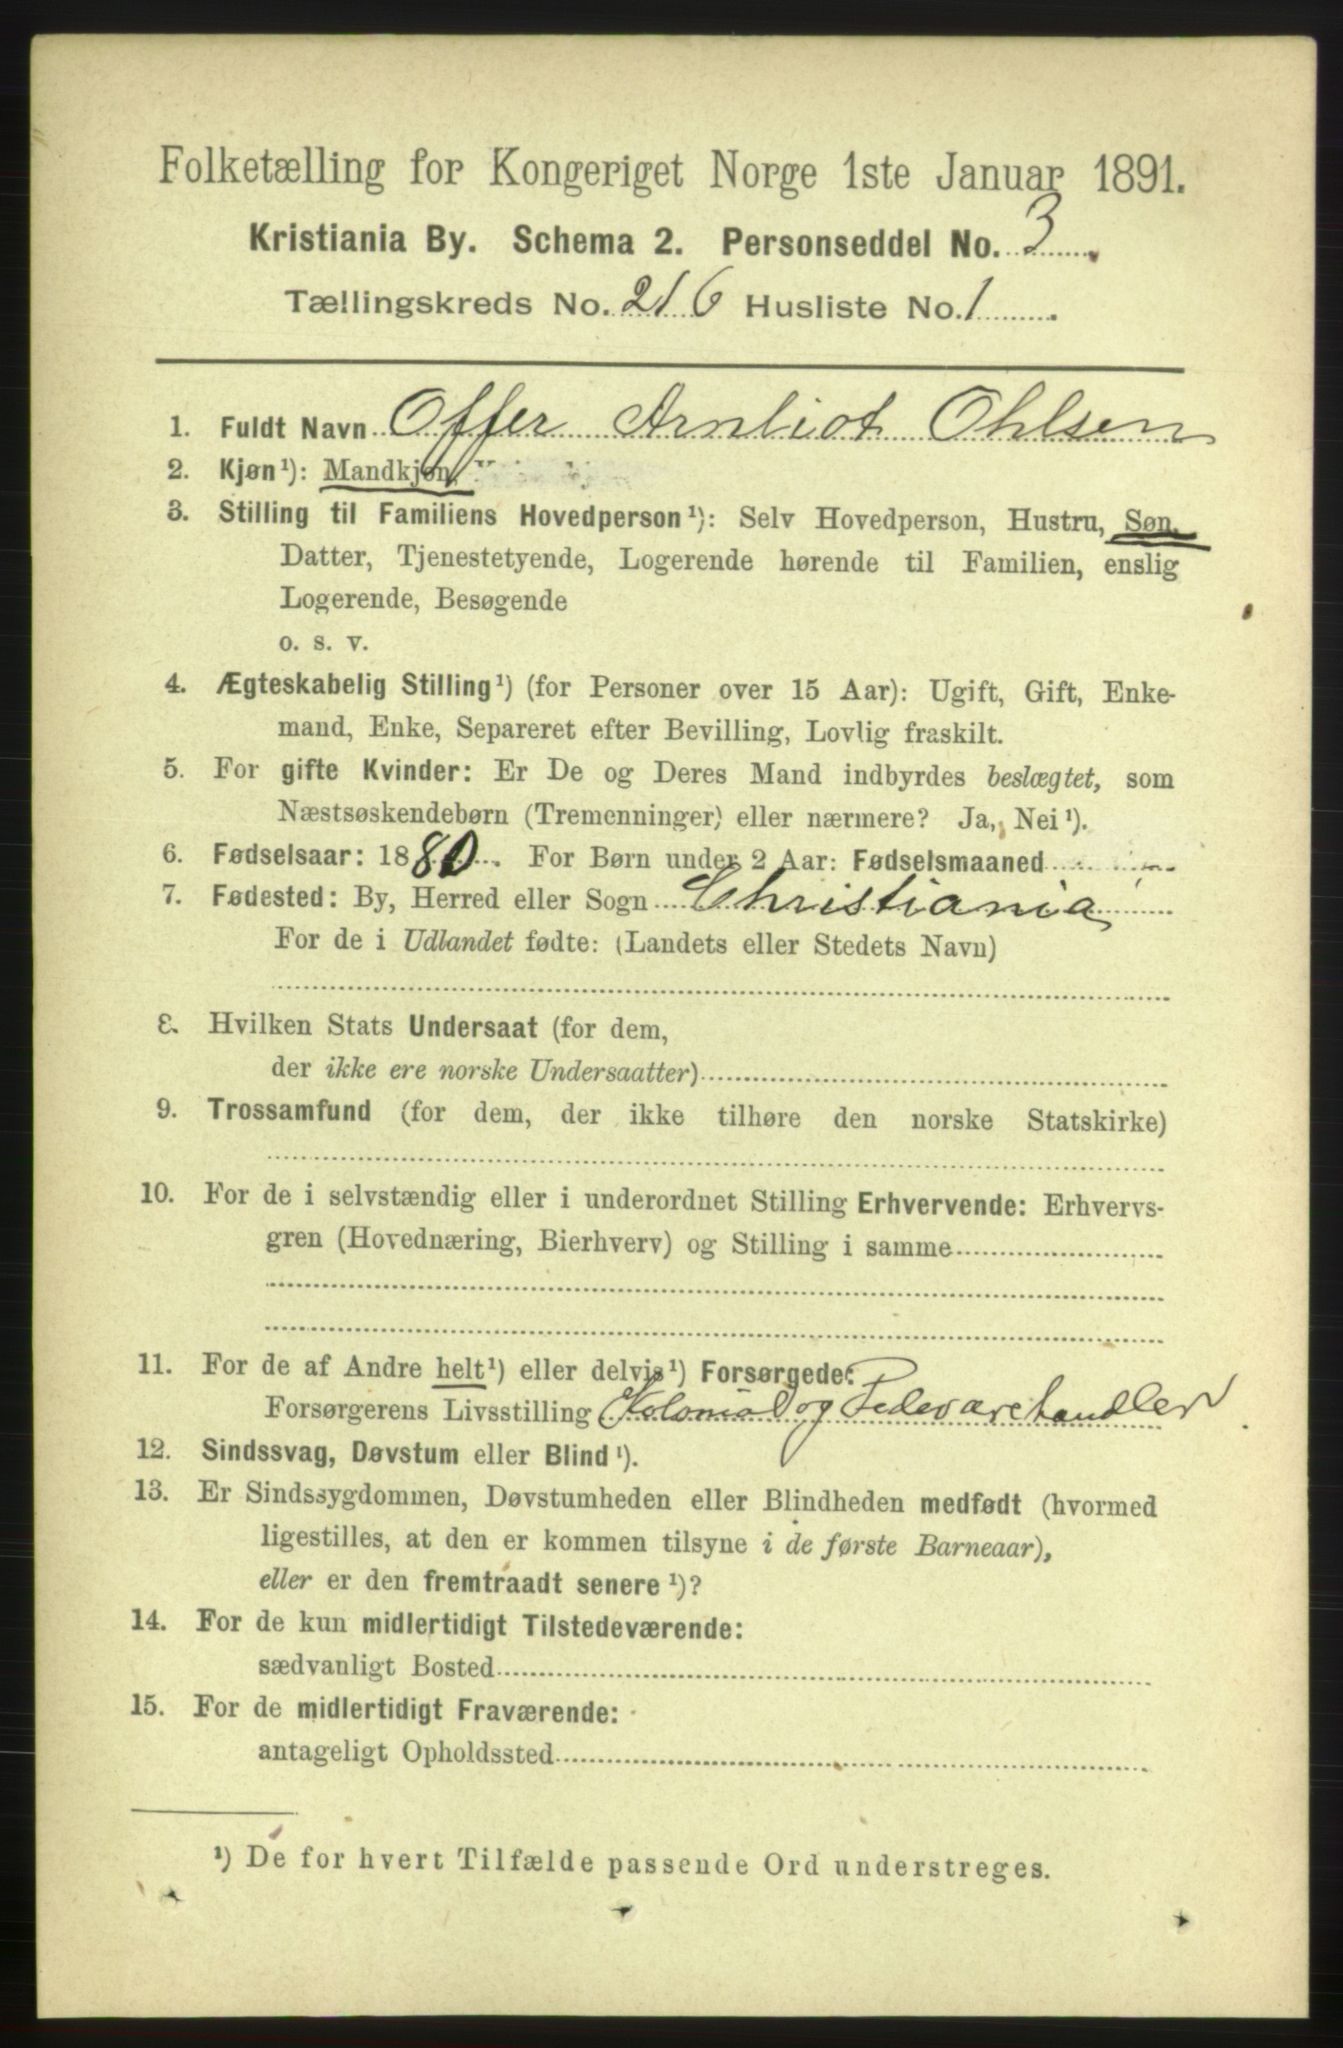 Folketælling for Kongeriget Norge 1ste Januar 1891.
Kristiania By. Schema 2. Personseddel No. 3.
Tællingskreds No. 216 Husliste No. 1.
1. Fuldt Navn Offer Arnliot Ohlsen
2. Kjøn¹): Mandkjøn,
3. Stilling til Familiens Hovedperson¹): Selv Hovedperson, Hustru, Søn,
Datter, Tjenestetyende, Logerende hørende til Familien, enslig
Logerende, Besøgende
o. s. v.
4. Ægteskabelig Stilling¹) (for Personer over 15 Aar): Ugift, Gift, Enke-
mand, Enke, Separeret efter Bevilling, Lovlig fraskilt.
5. For gifte Kvinder: Er De og Deres Mand indbyrdes beslægtet, som
Næstsøskendebørn (Tremenninger) eller nærmere? Ja, Nei¹).
6. Fødselsaar: 1880. For Børn under 2 Aar: Fødselsmaaned
7. Fødested: By, Herred eller Sogn Christiania
For de i Udlandet fødte: (Landets eller Stedets Navn)
8. Hvilken Stats Undersaat (for dem,
der ikke ere norske Undersaatter)
9. Trossamfund (for dem, der ikke tilhøre den norske Statskirke)
10. For de i selvstændig eller i underordnet Stilling Erhvervende: Erhvervs-
gren (Hovednæring, Bierhverv) og Stilling i samme
11. For de af Andre helt¹) eller delvis¹) Forsørgede:
Forsørgerens Livsstilling Kolonial og Fedevarehandler
12. Sindssvag, Døvstum eller Blind¹).
13. Er Sindssygdommen, Døvstumheden eller Blindheden medfødt (hvormed
ligestilles, at den er kommen tilsyne i de første Barneaar),
eller er den fremtraadt senere¹)?
14. For de kun midlertidigt Tilstedeværende:
sædvanligt Bosted
15. For de midlertidigt Fraværende:
antageligt Opholdssted
¹) De for hvert Tilfælde passende Ord understreges.